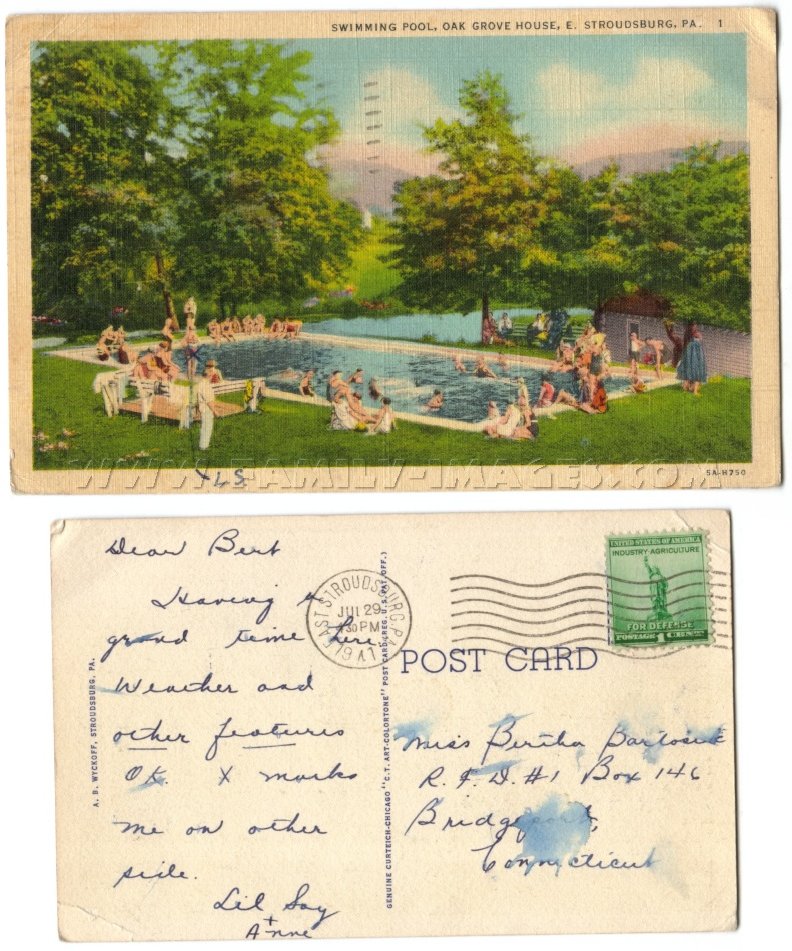 SWIMMING POOL, OAK GROVE HOUSE, E. STROUDSBURG, PA. 1
WWW.FAMILY-IMAGES.COM
X L.S.
5A-H750
Dear Bert
Having a
grand time here.
Weather and
other features
O.K. X marks
me on other
side.
Lil Soy
+
Anne
A. B. WYCKOFF, STROUDSBURG, PA.
GENUINE CURTEICH-CHICAGO "C.T. ART-COLORTONE" POST CARD (REG. U.S. PAT. OFF.)
EAST STROUDSBURG, PA.
JUL 29
30 PM
UNITED STATES OF AMERICA
INDUSTRY AGRICULTURE
FOR DEFENSE
POSTAGE 1 CENT
POST CARD
Miss Bertha
R.F.D. #1 Box 146
Bridgeport,
Connecticut